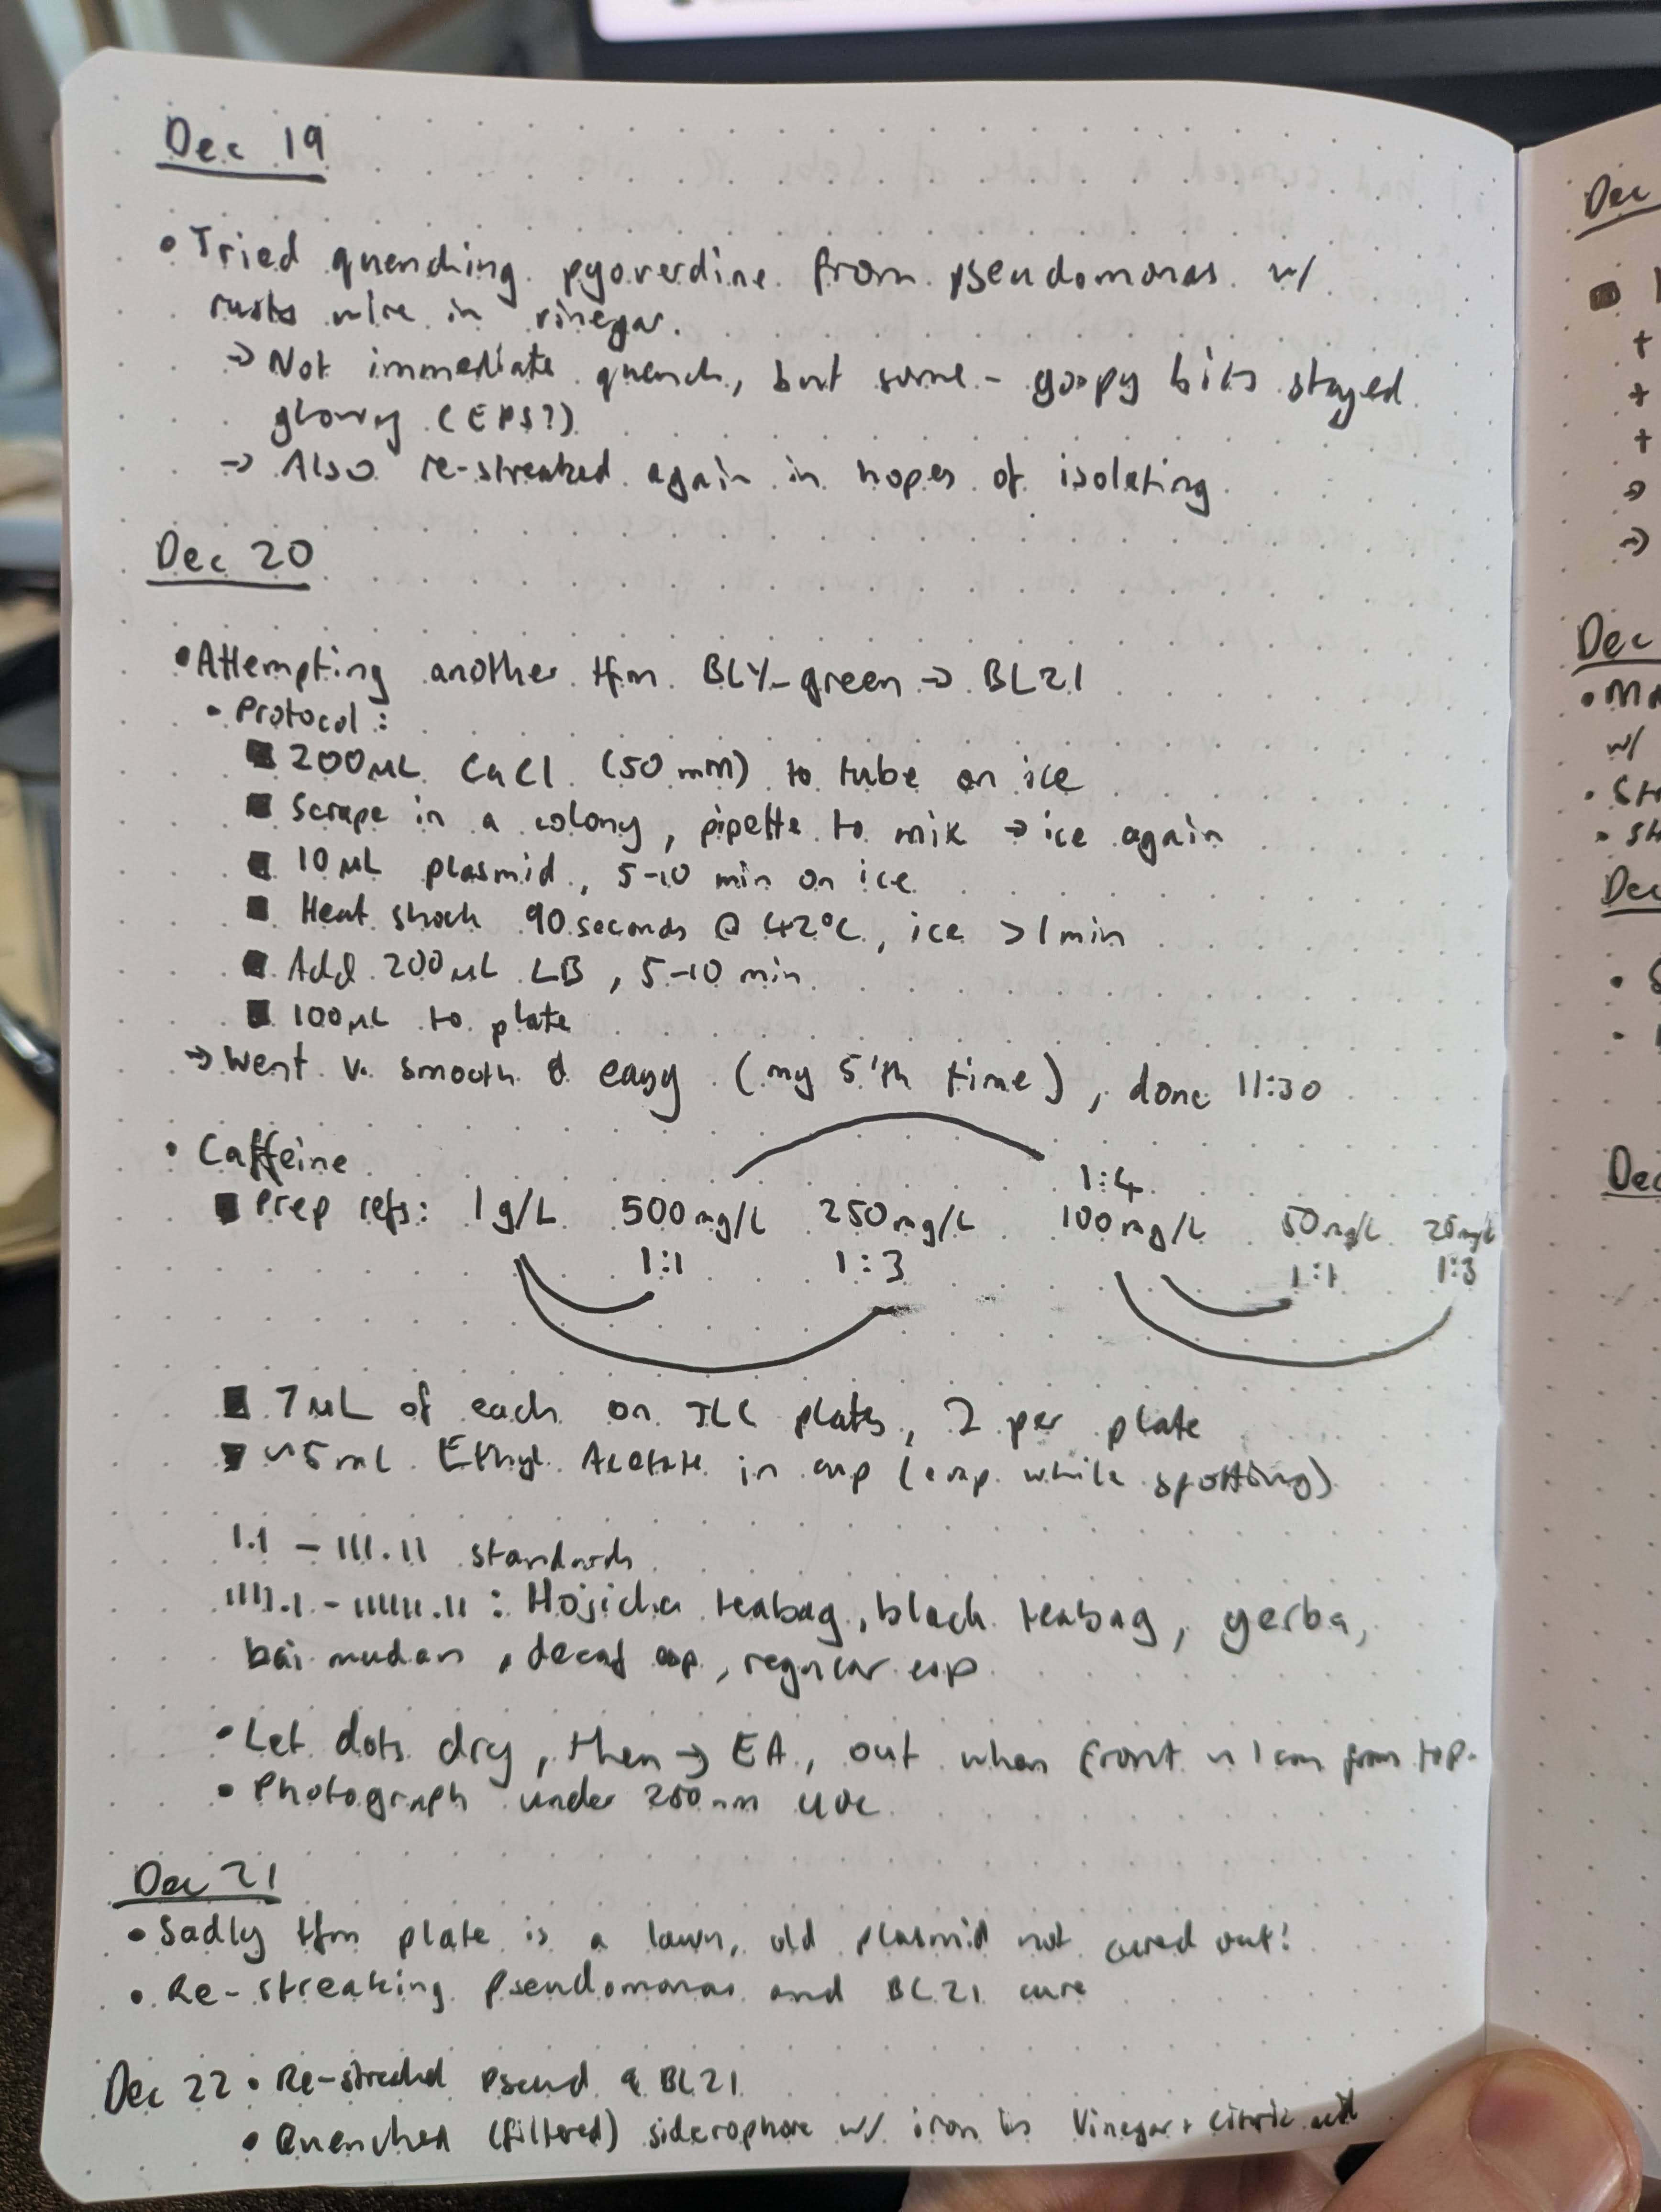 Dec 19
• Tried quenching pyoverdine from pseudomonas w/
rusty wire in vinegar.
→ Not immediate quench, but some - goopy bits stayed
glowy (EPS?)
→ Also re-streaked again in hopes of isolating
Dec 20
• Attempting another tfm BLY-green → BL21
• Protocol:
■ 200µL CaCl (50 mM) to tube on ice
■ Scrape in a colony, pipette to mix → ice again
■ 10 µL plasmid, 5-10 min on ice
■ Heat shock 90 seconds @ 42°C, ice >1min
■ Add 200µL LB, 5-10 min
■ 100µL to plate
→ Went v. smooth & easy (my 5'th time), done 11:30
• Caffeine
1:4
■ Prep refs: 1g/L 500mg/L 250mg/L 100mg/L 50mg/L 25mg/L
1:1 1:3 1:1 1:3
■ 7µL of each on TLC plates, 2 per plate
■ ~5mL Ethyl Acetate in cup (evap. while spotting)
I.I - III.II standards
IIII.I - IIIIII.II : Hojicha teabag, black teabag, yerba,
bai mudan, decaf esp, regular esp
• Let dots dry, then → EA, out when front ~1cm from top.
• Photograph under 250nm UVC
Dec 21
• Sadly tfm plate is a lawn, old plasmid not cured out!
• Re-streaking Pseudomonas and BL21 cure
Dec 22 • Re-streaked Pseud & BL21
• Quenched (filtered) siderophore w/ iron in Vinegar + citric acid
Dec
+
+
+
→
→
Dec
w/
Dec
Dec